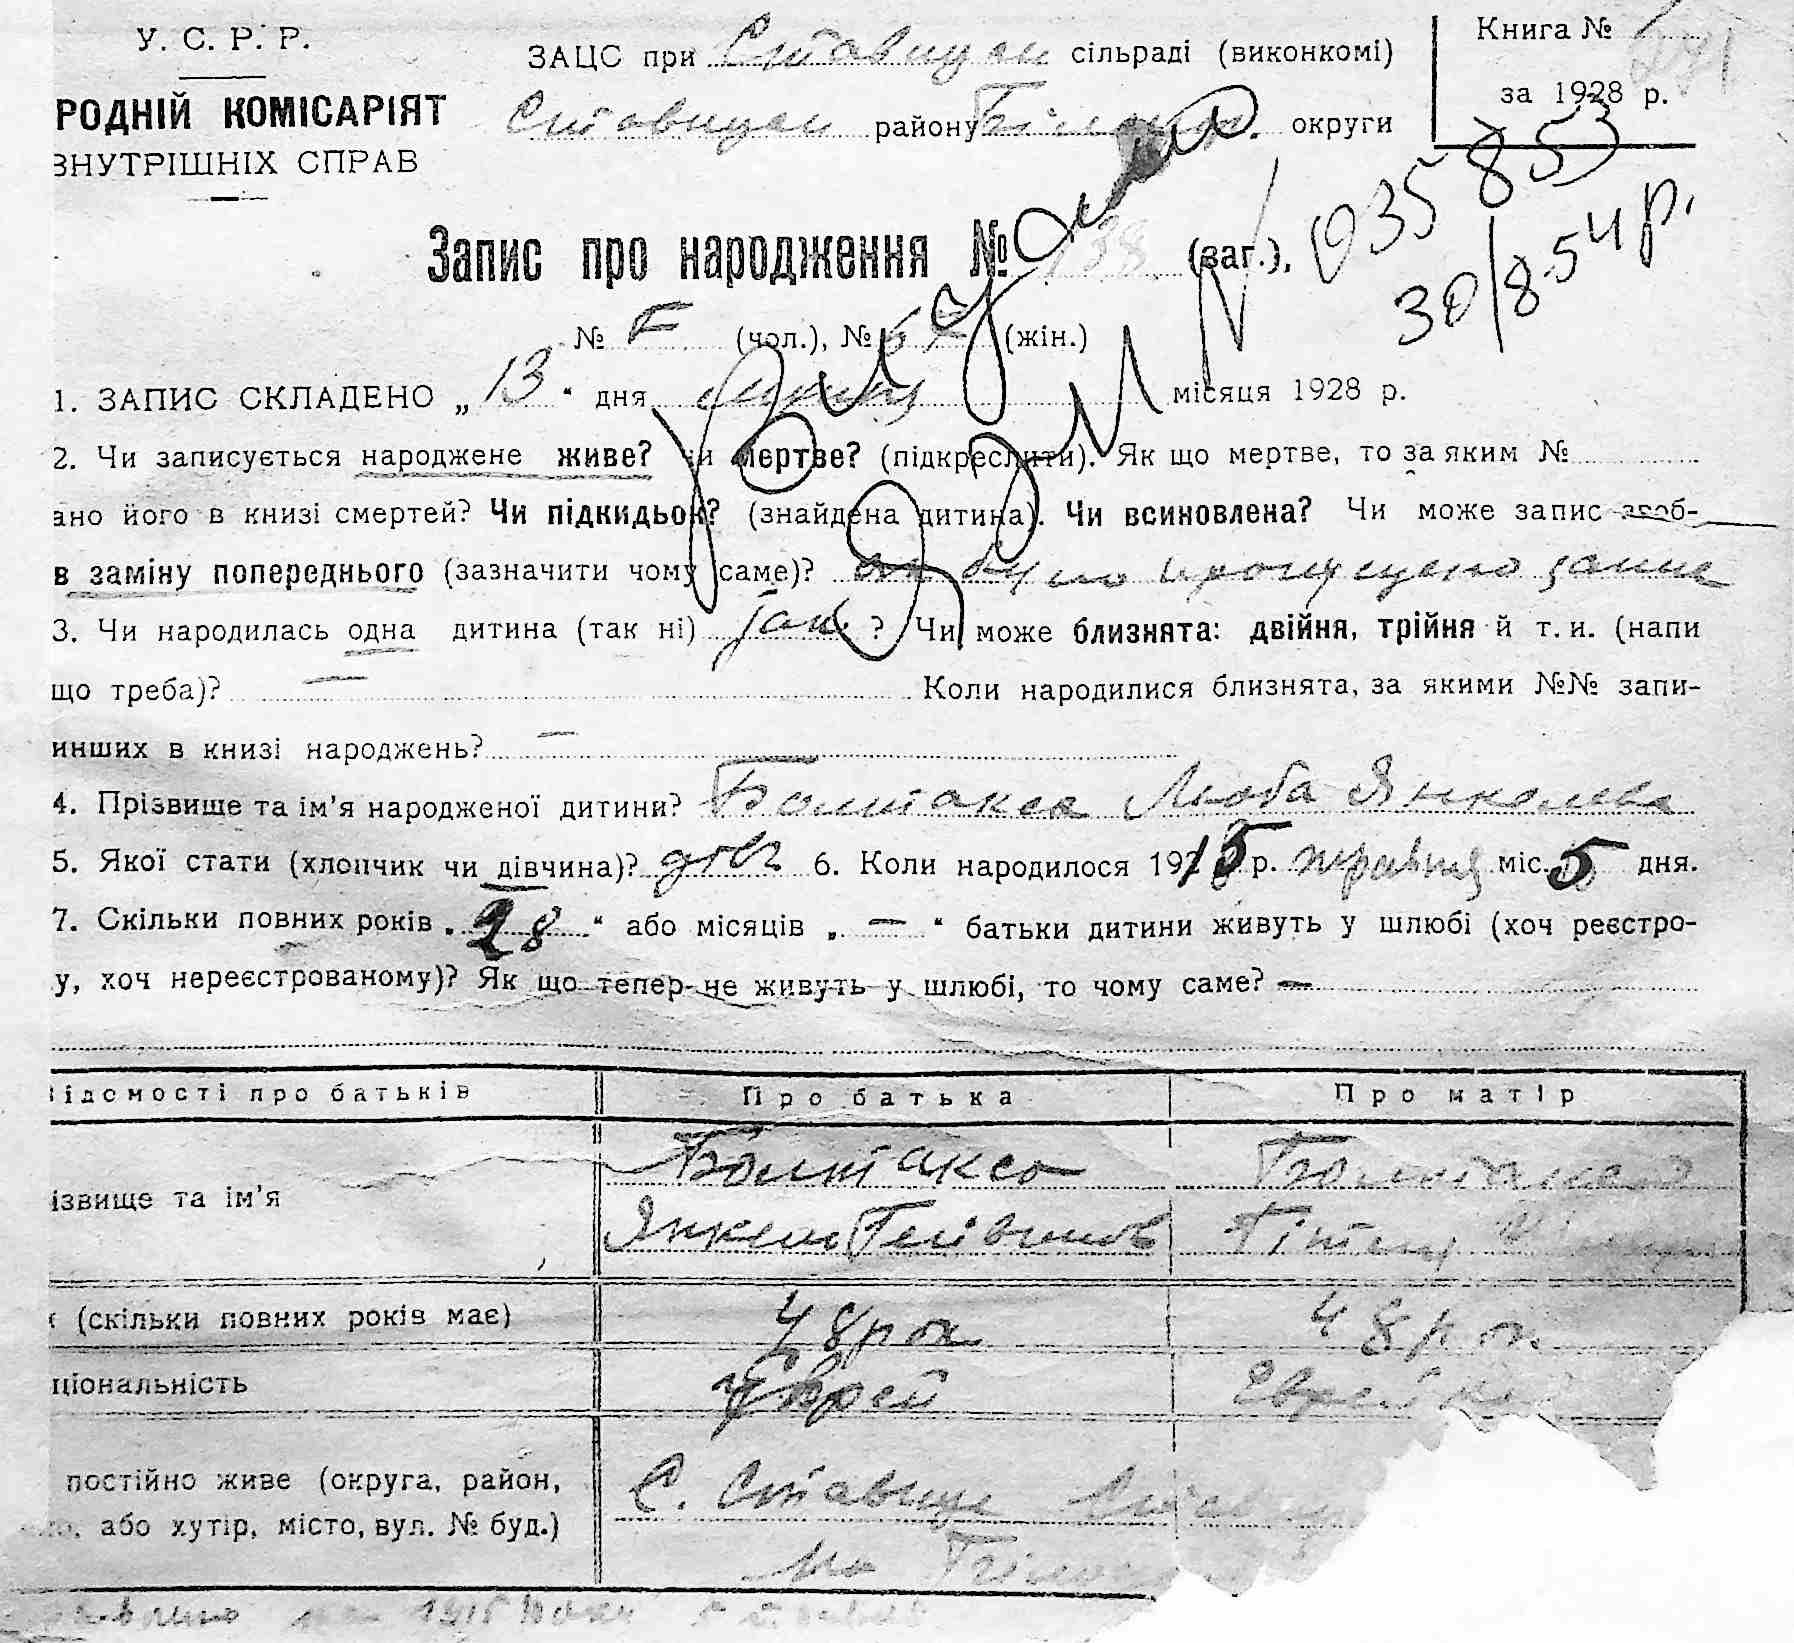 У. С. Р. Р.
РОДНІЙ КОМІСАРІЯТ
ВНУТРІШНІХ СПРАВ
ЗАЦС при Ставищан сільраді (виконкомі)
Ставищан району Білоцерк. округи
Книга №
за 1928 р.
035853
30/8-54 р.
Запис про народження № 138 (заг.),
№ (чол.), № 67 (жін.)
1. ЗАПИС СКЛАДЕНО „ 13 “ дня липня місяця 1928 р.
2. Чи записується народжене живе? чи мертве? (підкреслити). Як що мертве, то за яким №
ано його в книзі смертей? Чи підкидьок? (знайдена дитина). Чи всиновлена? Чи може запис зроб-
в заміну попереднього (зазначити чому саме)? було пропущено запис
3. Чи народилась одна дитина (так ні) так ? Чи може близнята: двійня, трійня й т. и. (напи
що треба)? — Коли народилися близнята, за якими №№ запи-
инших в книзі народжень? —
4. Прізвище та ім’я народженої дитини? Болтакса Люба Янкелева
5. Якої стати (хлопчик чи дівчина)? дівч 6. Коли народилося 1915 р. травня міс. 5 дня.
7. Скільки повних років „ 28 “ або місяців „ — “ батьки дитини живуть у шлюбі (хоч реєстро-
у, хоч нереєстрованому)? Як що тепер не живуть у шлюбі, то чому саме? —
ідомості про батьків Про батька Про матір
ізвище та ім’я Болтаксо Болтакса
Янкель
(скільки повних років має) 48 рок 48 рок
ціональність Єврей Єврейка
постійно живе (округа, район, С. Ставище
або хутір, місто, вул. № буд.)